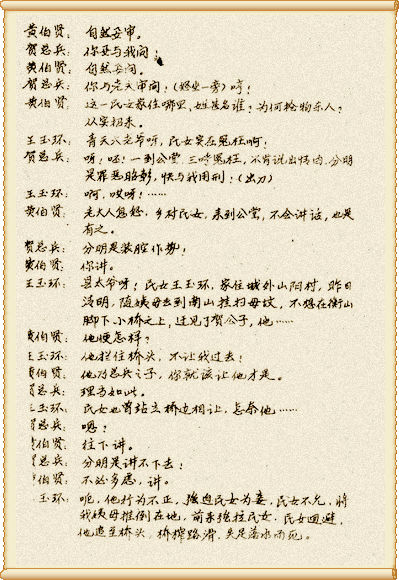 黄伯贤: 自然要审。
贺总兵: 你要与我问;
黄伯贤: 自然要问。
贺总兵: 你与老夫审问;(好坐一旁)哼!
黄伯贤: 这一民女家住哪里,姓甚名谁?为何抢物杀人?
从实招来。
王玉环: 青天大老爷呀,民女实在冤枉啊!
贺总兵: 呀!呸!一到公堂,三呼冤枉,不肯说出情由,分明
是罪恶昭彰,快与我用刑!(出刀)
王玉环: 啊,哎呀!……
黄伯贤: 老大人息怒,乡村民女,来到公堂,不会讲话,也是
有之。
贺总兵: 分明是装腔作势!
黄伯贤: 你讲。
王玉环: 县太爷呀!民女王玉环,家住城外山阳村,昨日
清明,随姨母去到南山挂扫母坟,不想在衡山
脚下小桥之上,迂见了贺公子,他……
黄伯贤: 他便怎样?
王玉环: 他拦住桥头,不让我过去!
黄伯贤: 他乃总兵之子,你就该让他才是。
贺总兵: 理当如此。
王玉环: 民女也曾站立桥边相让,怎奈他……
贺总兵: 嗯?
黄伯贤: 往下讲。
贺总兵: 分明是讲不下去!
黄伯贤: 不必多虑,讲。
王玉环: 呃,他行为不正,强迫民女为妾,民女不允,将
我姨母推倒在地,前来强拉民女,民女回避,
他追至桥头,桥榨路滑,失足落水而死。